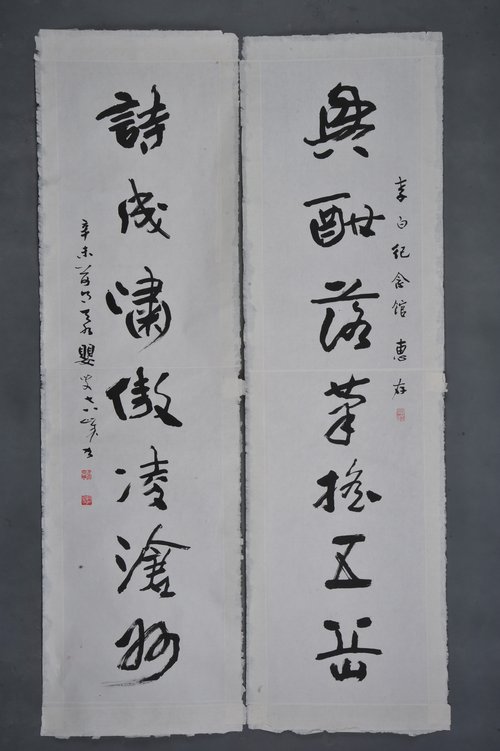 興酣落筆搖五岳
李白纪念馆 惠存
詩成嘯傲凌滄州
辛未